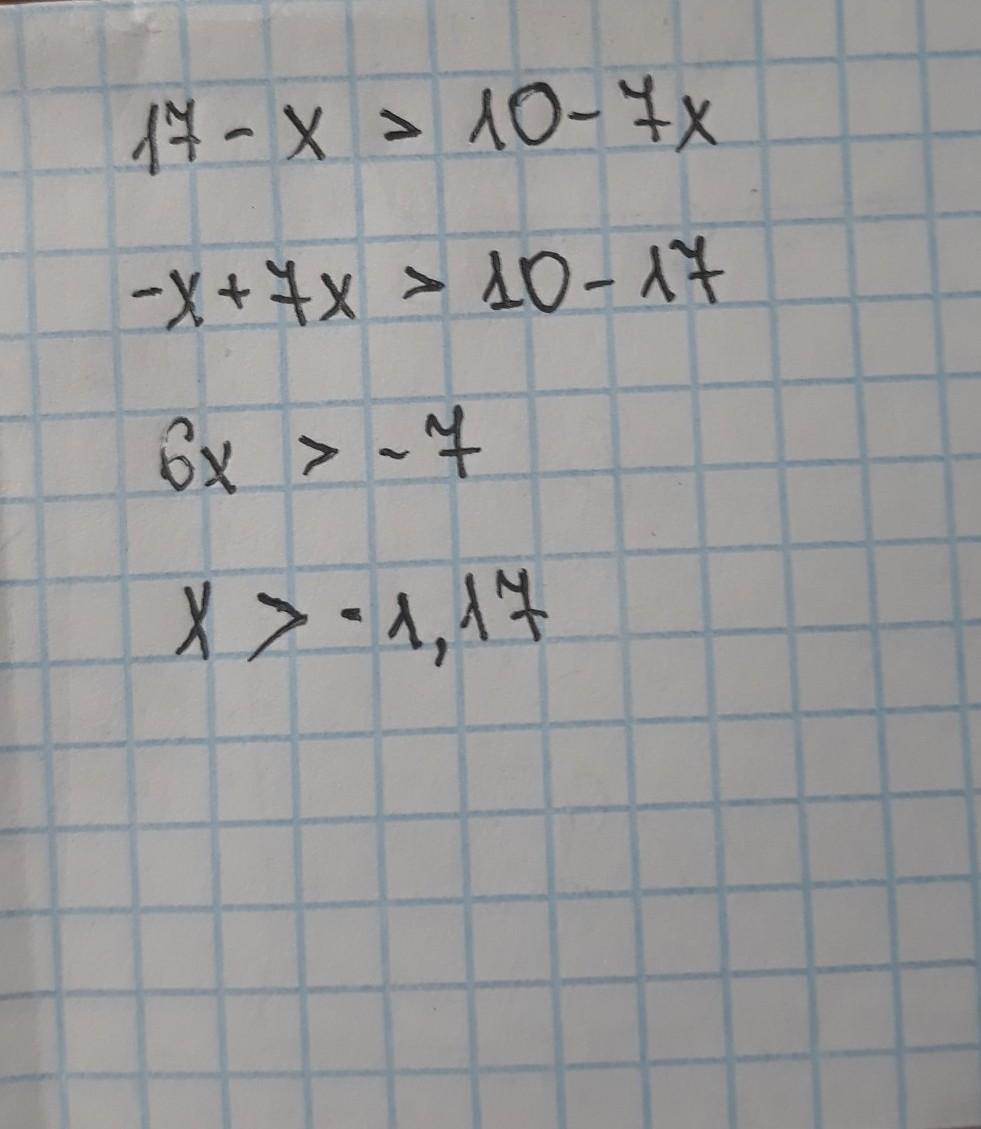 17 - x > 10 - 7x
-x + 7x > 10 - 17
6x > - 7
x > - 1,17